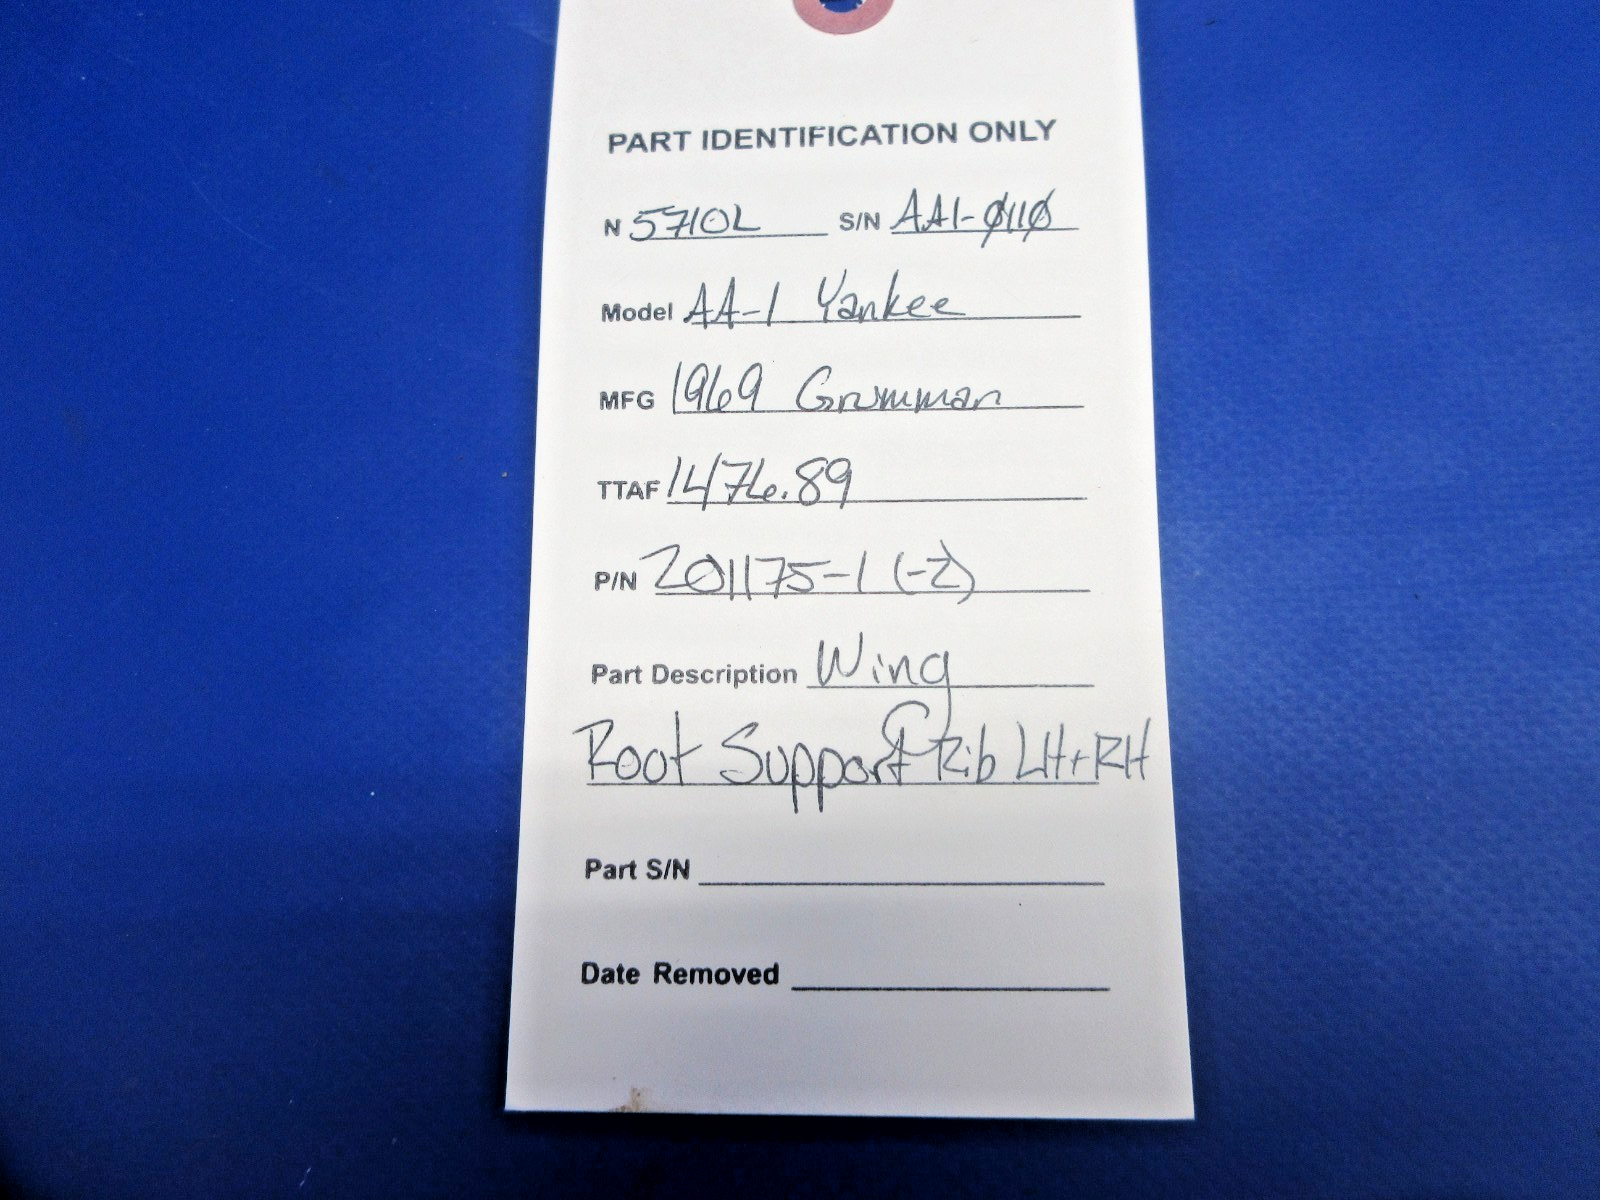 PART IDENTIFICATION ONLY
N 5710L S/N AA1-0110
Model AA-1 Yankee
MFG 1969 Grumman
TTAF 1476.89
P/N 201175-1 (-2)
Part Description Wing
Root Support Rib LH+RH
Part S/N
Date Removed